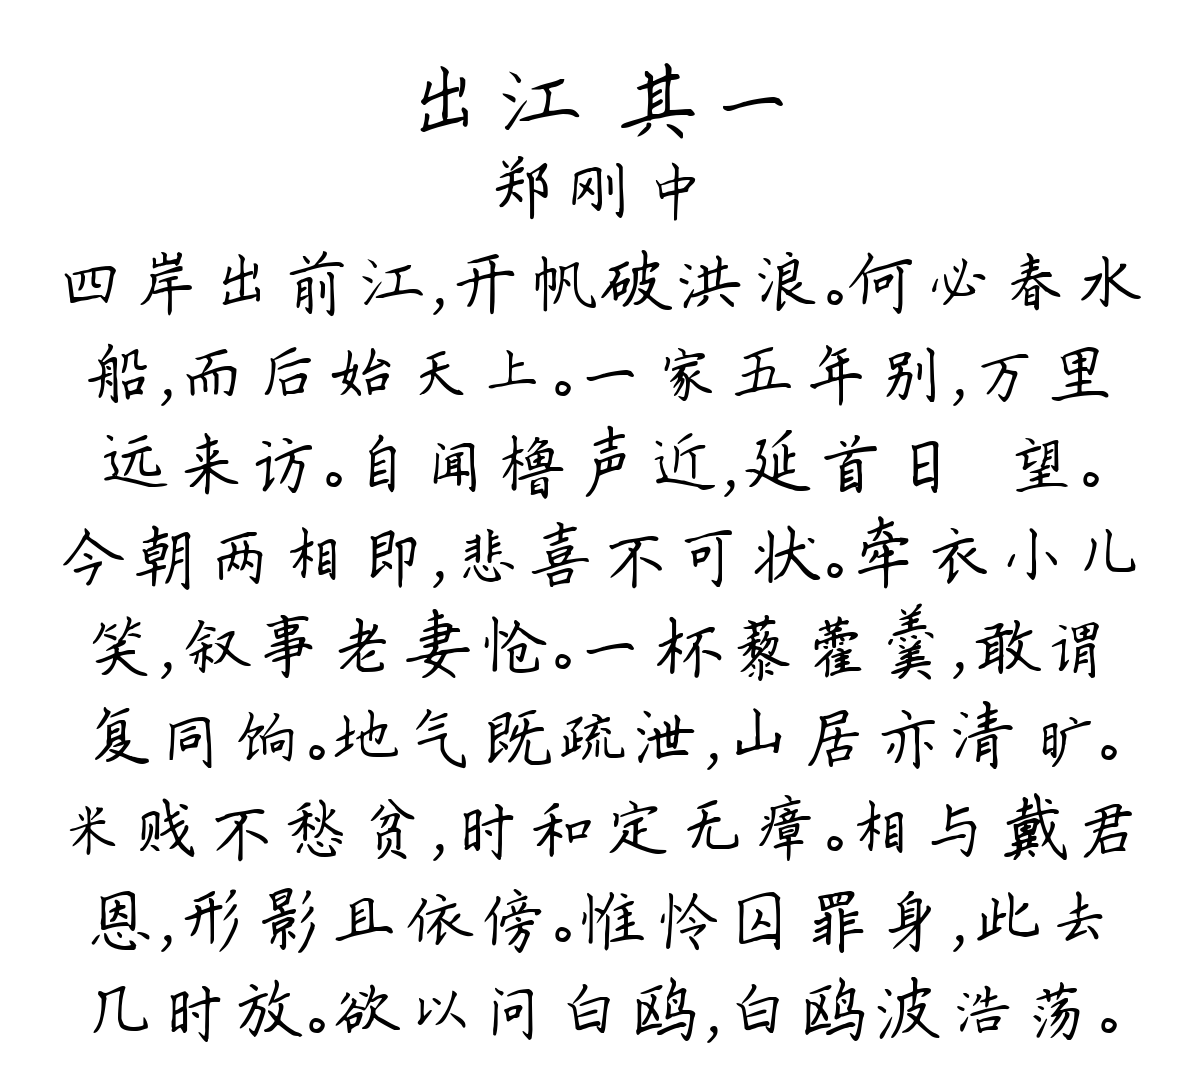 出江 其一
郑刚中
四岸出前江,开帆破洪浪。何必春水
船,而后始天上。一家五年别,万里
远来访。自闻橹声近,延首日 望。
今朝两相即,悲喜不可状。牵衣小儿
笑,叙事老妻怆。一杯藜藿羹,敢谓
复同饷。地气既疏泄,山居亦清旷。
米贱不愁贫,时和定无瘴。相与戴君
恩,形影且依傍。惟怜囚罪身,此去
几时放。欲以问白鸥,白鸥波浩荡。